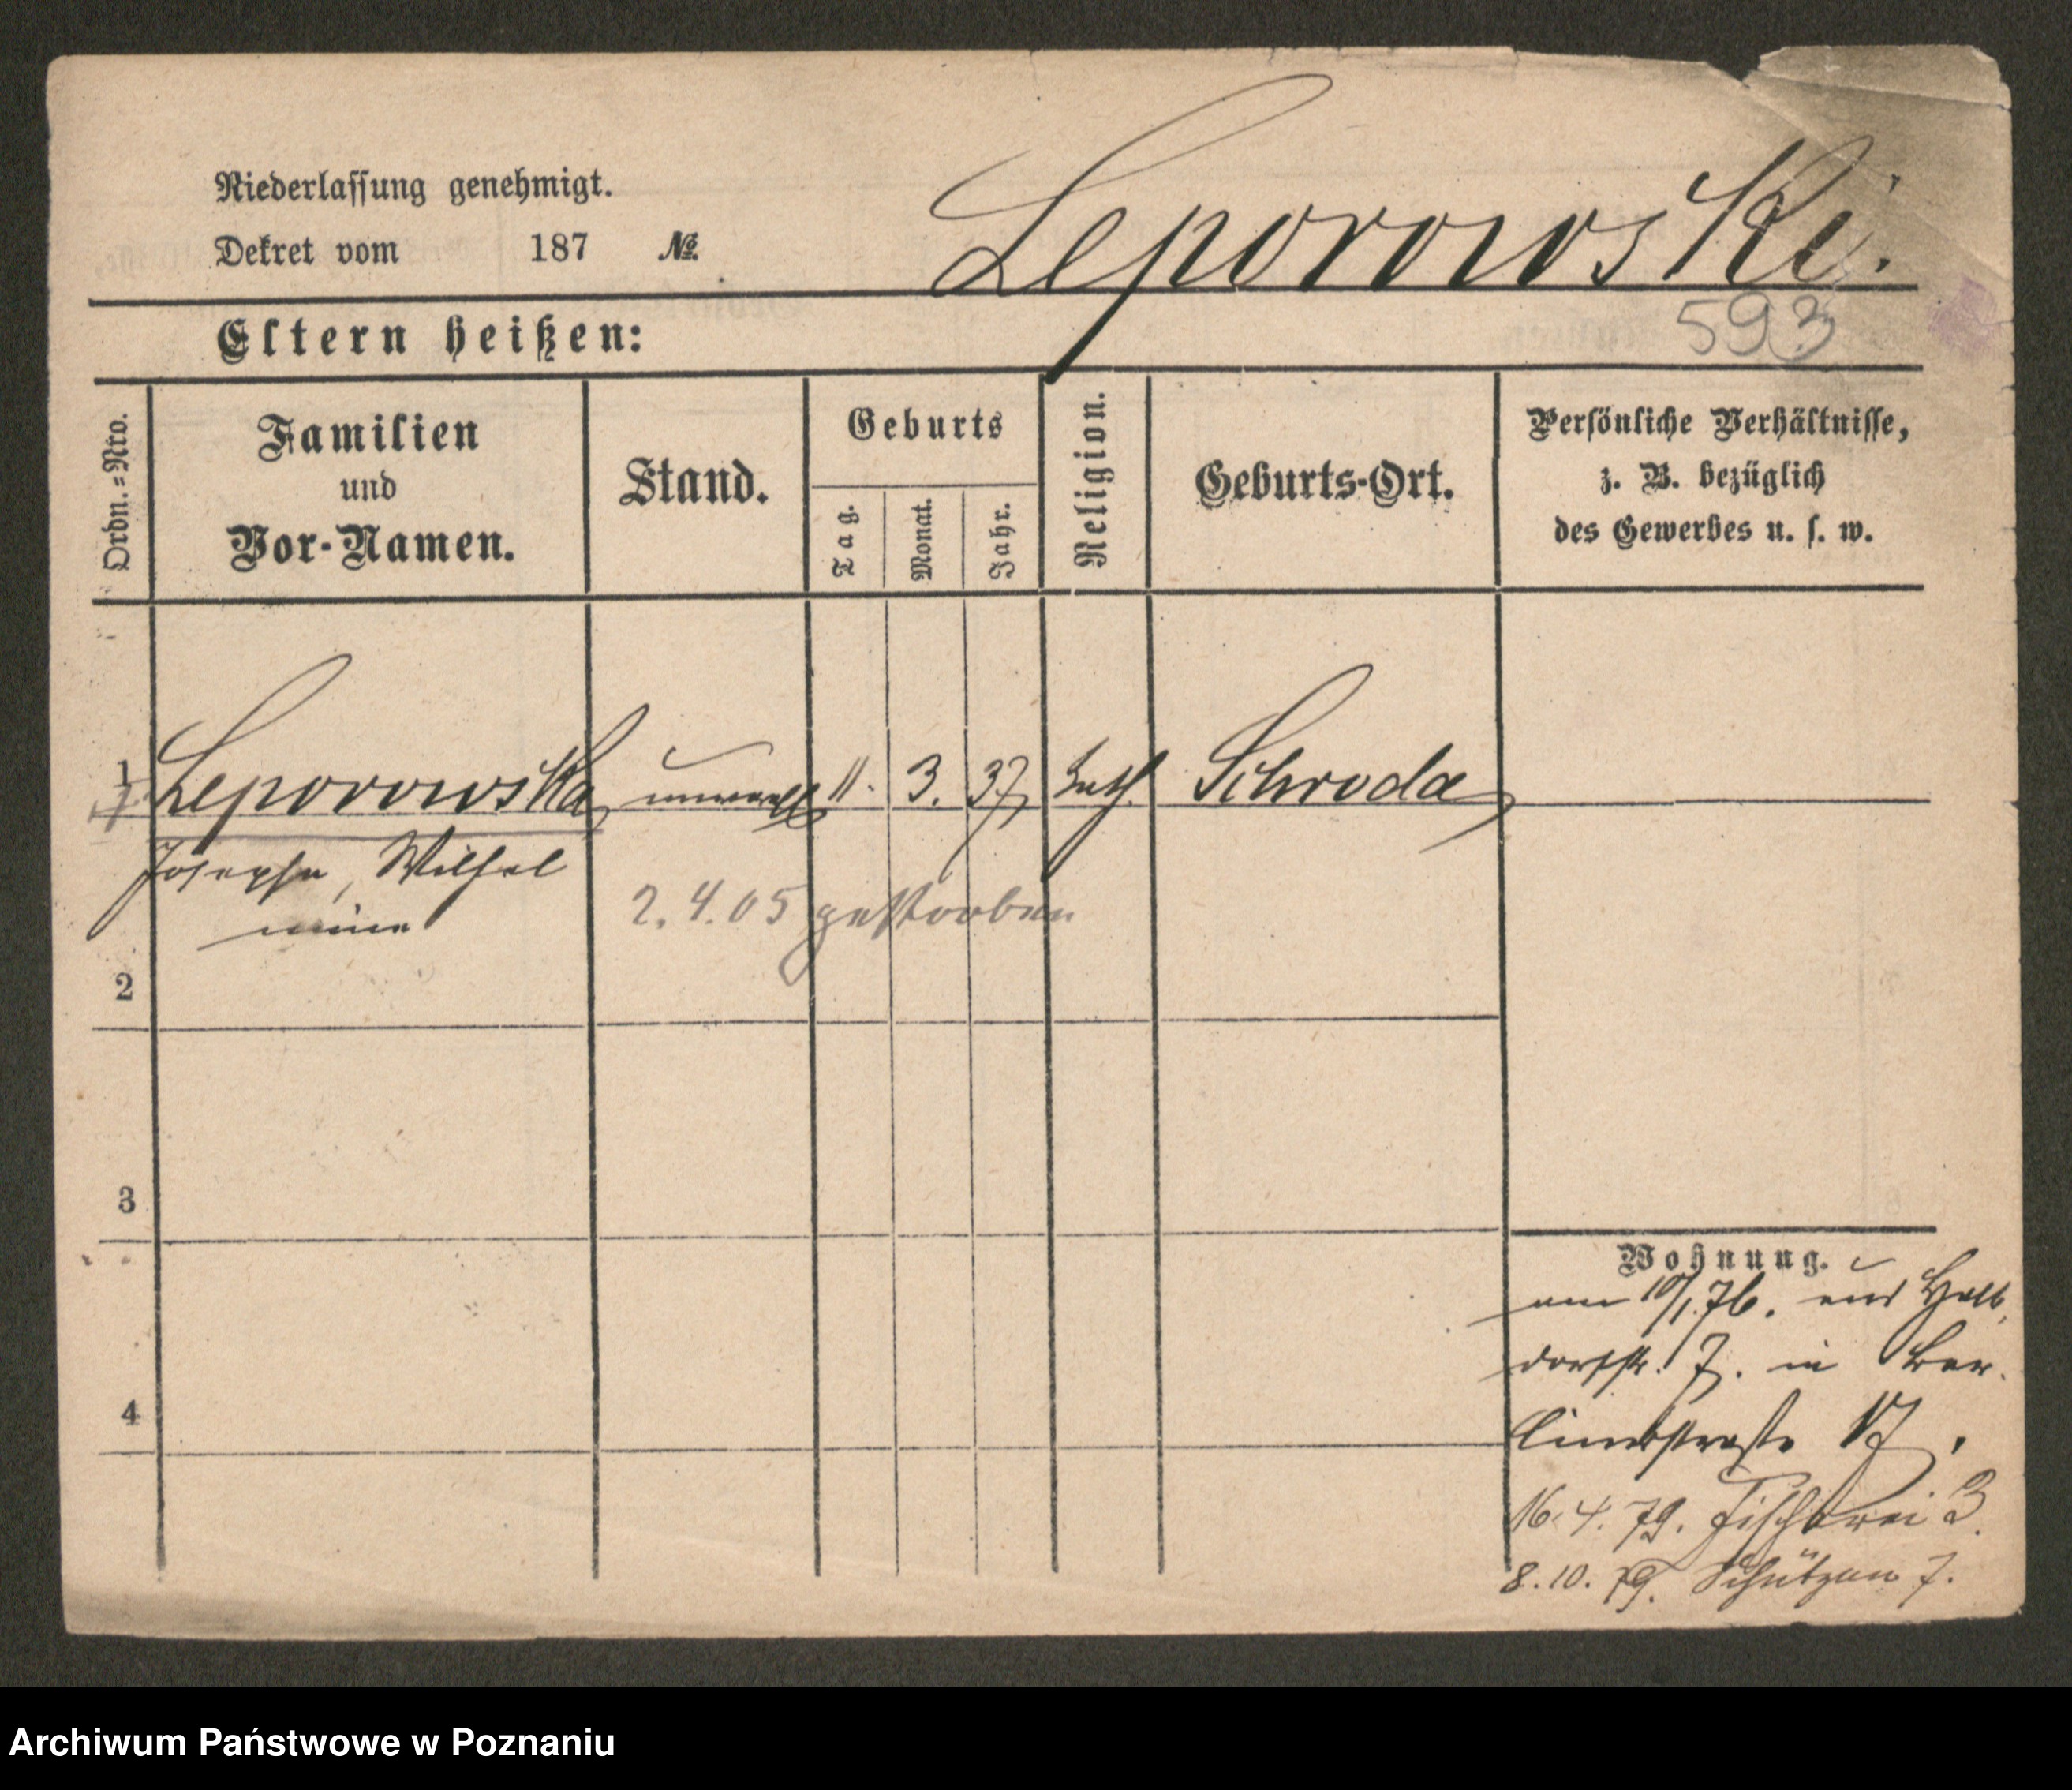 Niederlassung genehmigt.
Dekret vom 187 №
Leporowski.
593
Eltern heißen:
Ordn.=Nro.
Familien
und
Vor-Namen.
Stand.
Geburts
Tag.
Monat.
Jahr.
Religion.
Geburts-Ort.
Persönliche Verhältnisse,
z. B. bezüglich
des Gewerbes u. s. w.
1 Leporowska unverell 11. 3. 37 kath. Schroda
Josepha, Wilhel
mine
2.4.05 gestorben
2
3
4
Wohnung.
am 10/1.76. aus Halb
dorfstr. 7. in Ber
linerstrasse 17.
16.4.79. Fischerei 3.
8.10.79. Schützen 7.
Archiwum Państwowe w Poznaniu